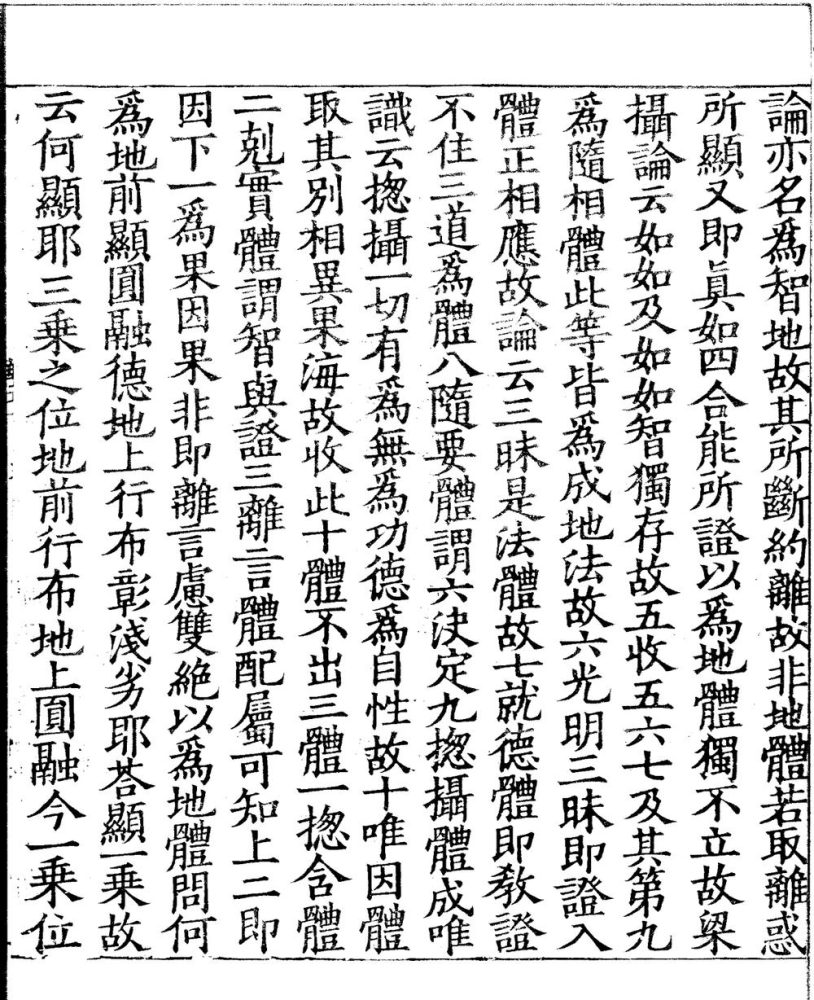 論亦名爲智地故其所斷約離故非地體若取離惑
所顯又即眞如四合能所證以爲地體獨不立故梁
攝論云如如及如如智獨存故五收五六七及其第九
爲隨相體此等皆爲成地法故六光明三昧即證入
體正相應故論云三昧是法體故七就德體即教證
不住三道爲體八隨要體謂六決定九揔攝體成唯
識云揔攝一切有爲無爲功德爲自性故十唯因體
取其別相異果海故收此十體不出三體一揔含體
二剋實體謂智與證三離言體配屬可知上二即
因下一爲果因果非即離言慮雙絶以爲地體問何
爲地前顯圓融德地上行布彰淺劣耶荅顯一乗故
云何顯耶三乗之位地前行布地上圓融今一乗位